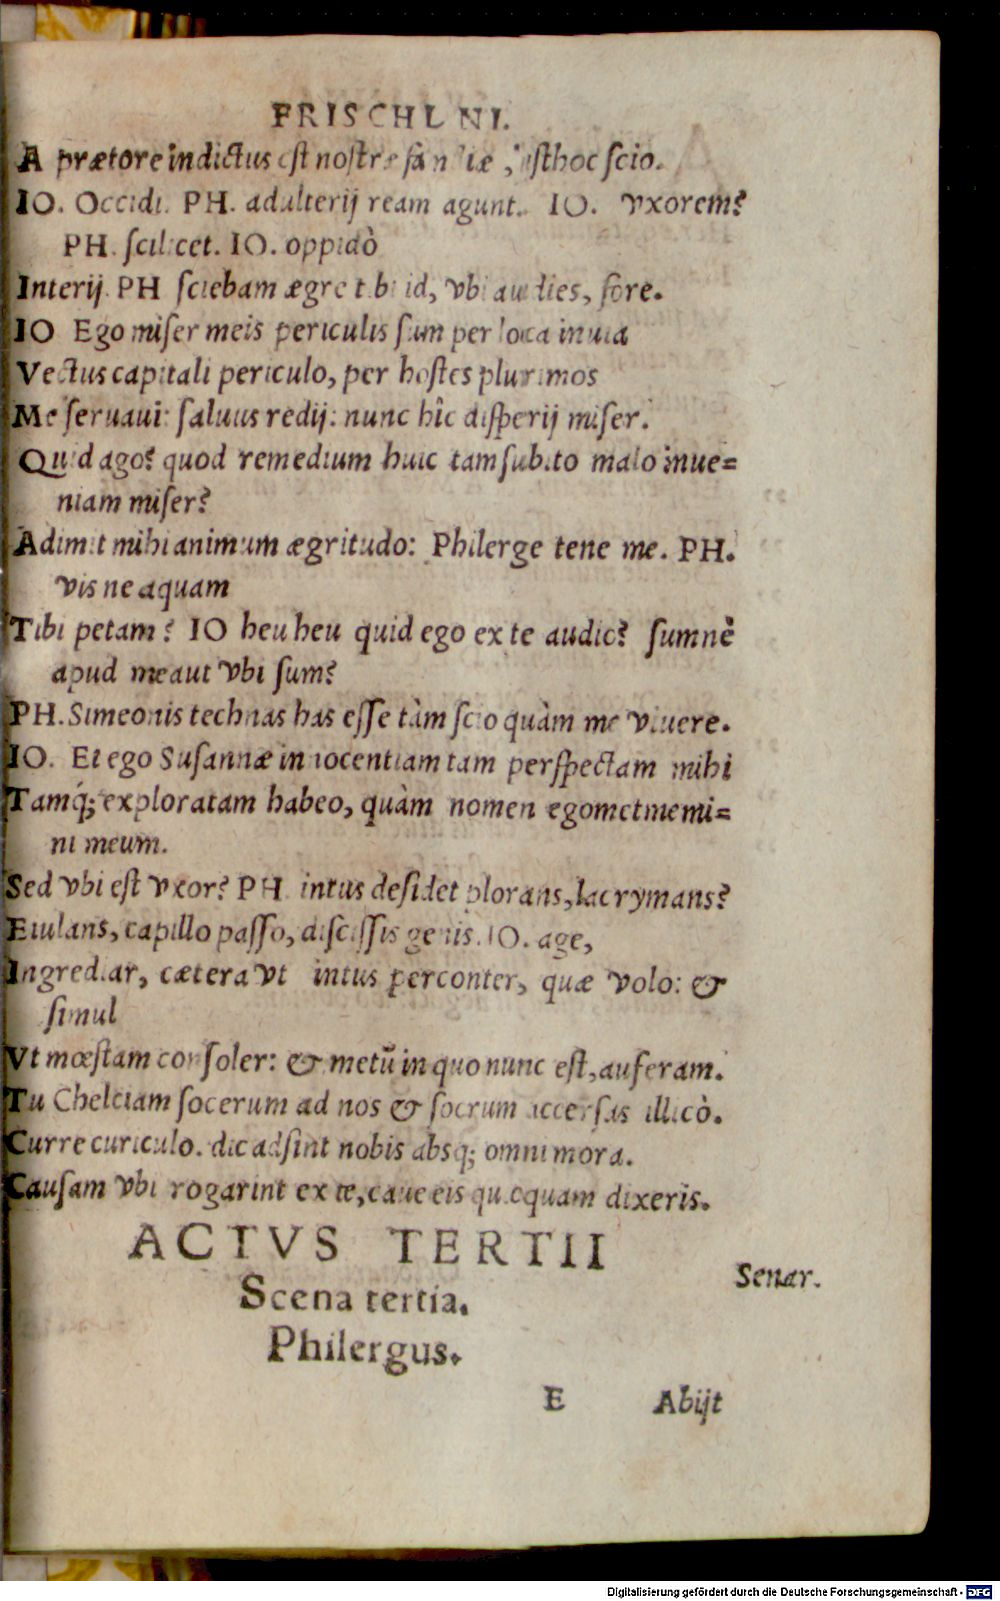 FRISCHLINI.
A prætore indictus est nostræ familiæ, isthoc scio.
IO. Occidi. PH. adulterij ream agunt. IO. vxorem?
PH. scilicet. IO. oppidò
Interij. PH sciebam ægre tibi id, vbi audies, fore.
IO Ego miser meis periculis sum per loca inuia
Vectus capitali periculo, per hostes plurimos
Me seruaui: saluus redij: nunc hîc disperij miser.
Quid ago? quod remedium huic tam subito malo inue=
niam miser?
Adimit mihi animum ægritudo: Philerge tene me. PH.
vis ne aquam
Tibi petam? IO heu heu quid ego ex te audio? sumnè
apud me aut vbi sum?
PH. Simeonis technas has esse tàm scio quàm me viuere.
IO. Et ego Susannæ innocentiam tam perspectam mihi
Tamq́; exploratam habeo, quàm nomen egomet memi=
ni meum.
Sed vbi est vxor? PH intus desidet plorans, lacrymans?
Eiulans, capillo passo, discissis genis. IO. age,
Ingrediar, cætera vt intus perconter, quæ volo: &
simul
Vt mœstam consoler: & metũ in quo nunc est, auferam.
Tu Chelciam socerum ad nos & socrum accersas illicò.
Curre curiculo. dic adsint nobis absq; omni mora.
Causam vbi rogarint ex te, caue eis quicquam dixeris.
ACTVS TERTII
Senar.
Scena tertia.
Philergus.
E Abijt
Digitalisierung gefördert durch die Deutsche Forschungsgemeinschaft - DFG